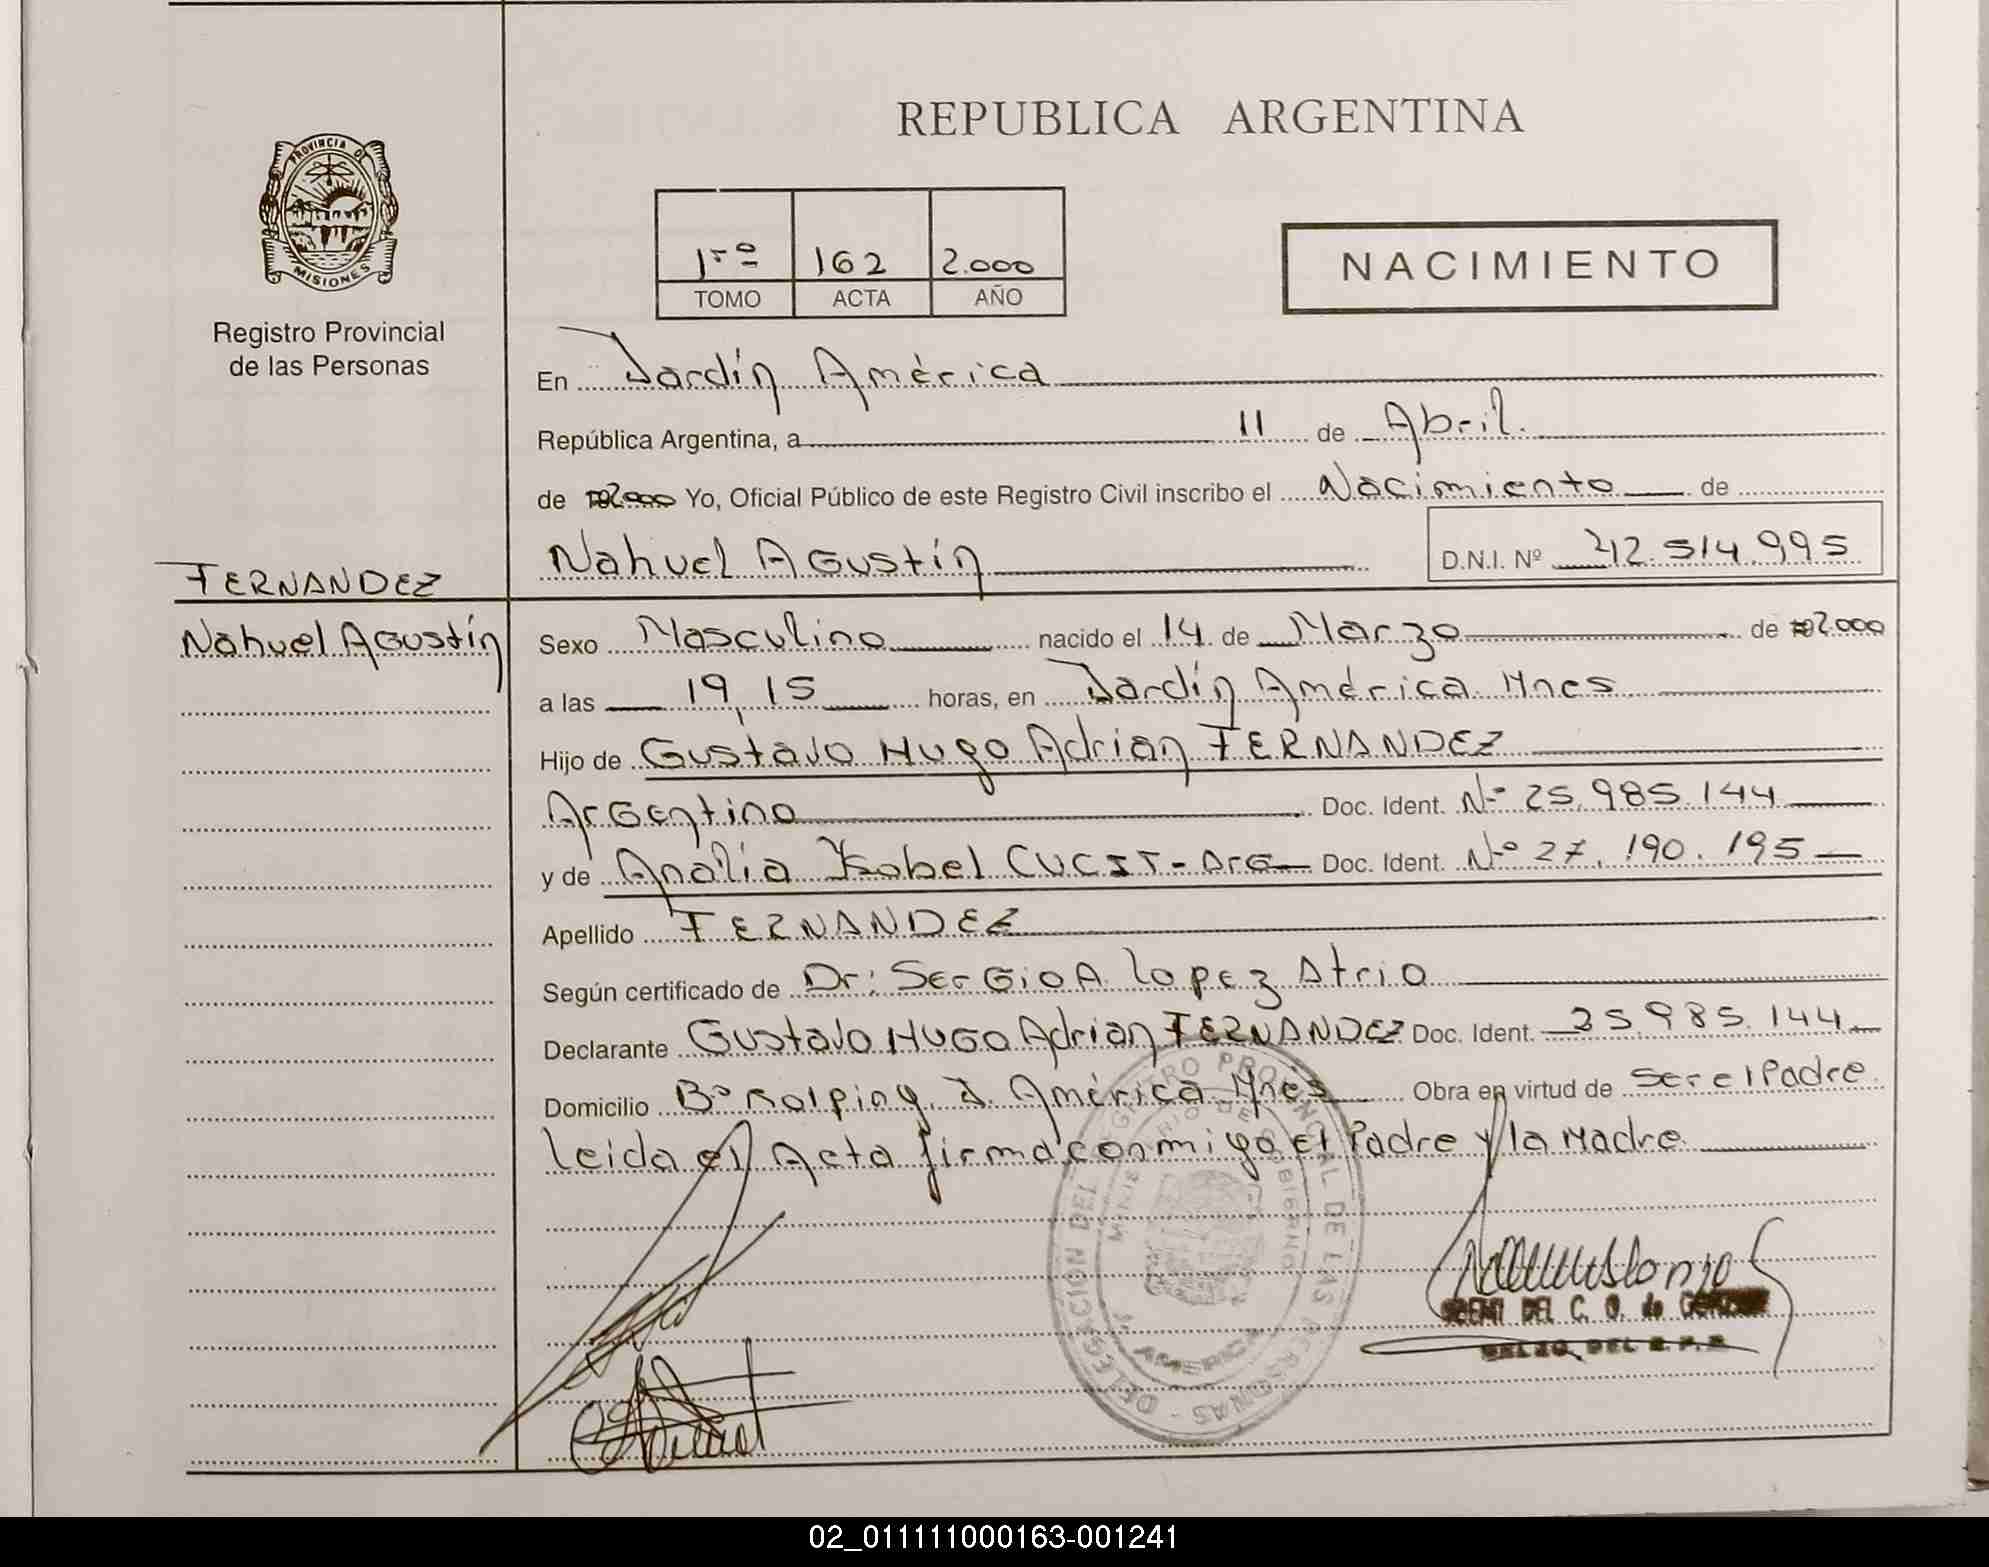 REPUBLICA ARGENTINA
PROVINCIA DE
MISIONES
Registro Provincial
de las Personas
1rº 162 2.000
TOMO ACTA AÑO
NACIMIENTO
En Jardín América
República Argentina, a 11 de Abril.
de 2.000 Yo, Oficial Público de este Registro Civil inscribo el Nacimiento de
Nahuel Agustín D.N.I. Nº 42.514.995
FERNANDEZ
Nahuel Agustín
Sexo Masculino nacido el 14 de Marzo de 2.000
a las 19,15 horas, en Jardín América Mnes
Hijo de Gustavo Hugo Adrian FERNANDEZ
Argentino Doc. Ident. Nº 25.985.144
y de Analia Ysabel - Arg Doc. Ident. Nº 27.190.195
Apellido FERNANDEZ
Según certificado de Dr: Sergio A. Lopez Atrio
Declarante Gustavo Hugo Adrian FERNANDEZ Doc. Ident. 25.985.144
Domicilio Bº Kolping J. América Mnes Obra en virtud de ser el Padre.
Leida el Acta firma conmigo el Padre y la Madre
DELEGACION DEL REGISTRO PROVINCIAL DE LAS PERSONAS
MINISTERIO DE GOBIERNO
AMERICA
DEL C. G. de
DEL R. P. P.
02_011111000163-001241